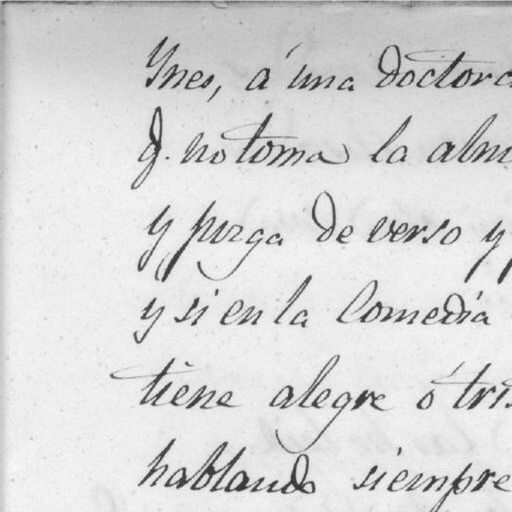 Ynes, á una doctora
q. no toma la alm
y juzga de verso y p
y si en la Comedia
tiene alegre ó tris
hablando siempre